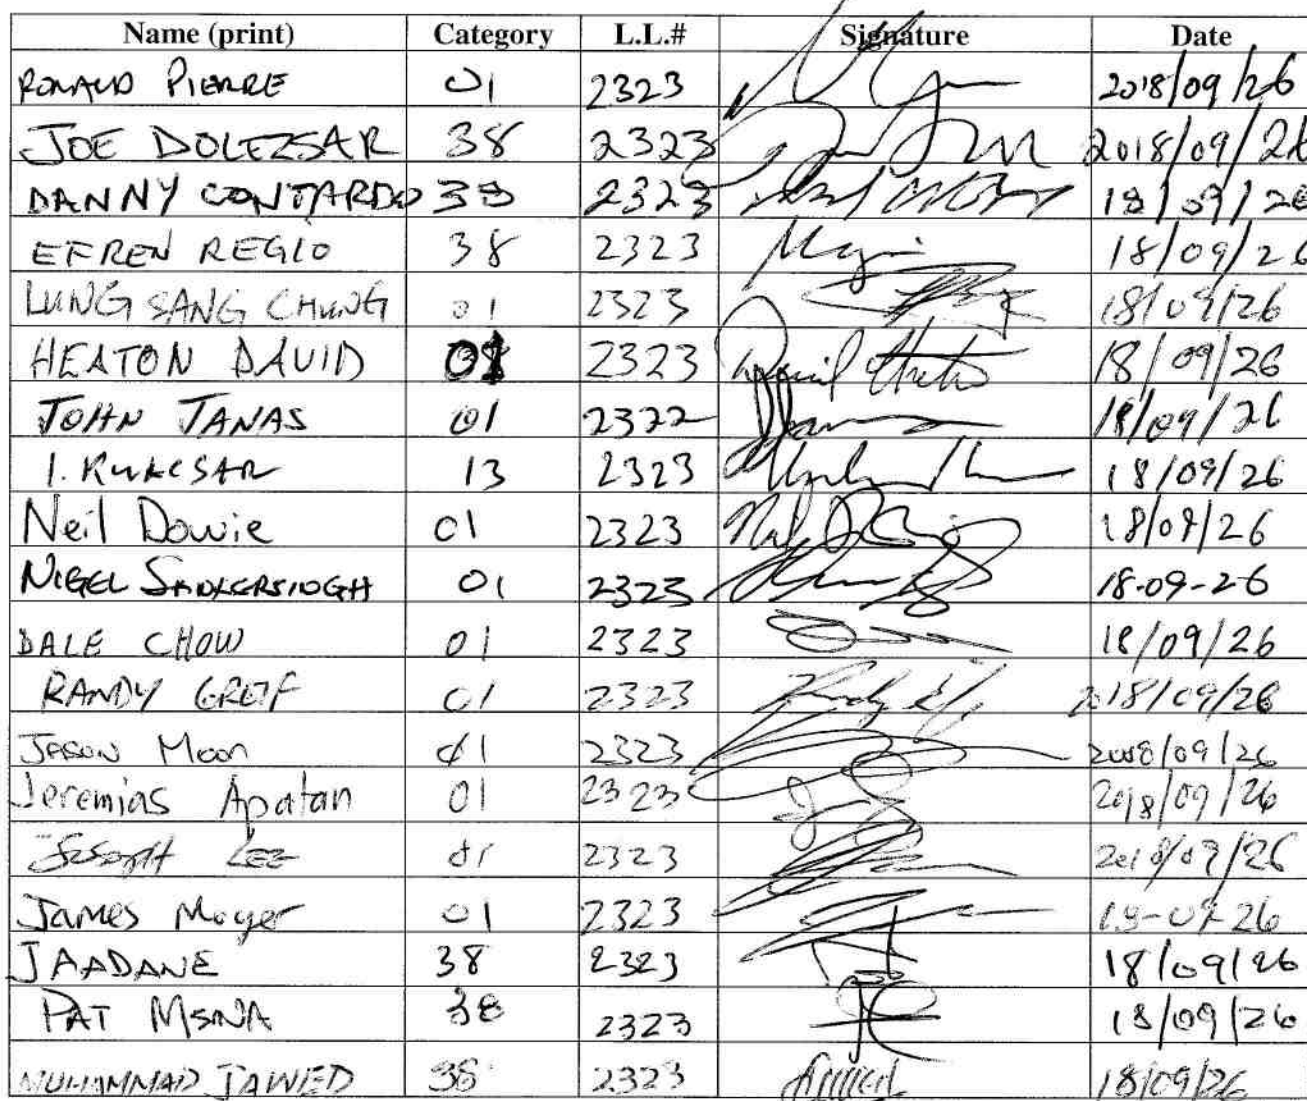 Name (print) Category L.L.# Signature Date
RONALD PIERRE 01 2323 2018/09/26
JOE DOLEZSAR 38 2323 2018/09/26
DANNY CONTARDO 38 2323 18/09/26
EFREN REGIO 38 2323 18/09/26
LUNG SANG CHUNG 01 2323 18/09/26
HEATON DAVID 01 2323 David Heaton 18/09/26
JOHN TANAS 01 2322 18/09/26
I. KUKCSAR 13 2323 18/09/26
Neil Dowie 01 2323 18/09/26
NIGEL SANKERSINGH 01 2323 18-09-26
DALE CHOW 01 2323 18/09/26
RANDY GREIF 01 2323 2018/09/26
JASON Moon 01 2323 2018/09/26
Jeremias Apatan 01 2323 2018/09/26
JOSEPH LEE 01 2323 2018/09/26
James Moyer 01 2323 18-09-26
JAADANE 38 2323 18/09/26
PAT MSNA 38 2323 18/09/26
MUHAMMAD JAWED 38 2323 18/09/26